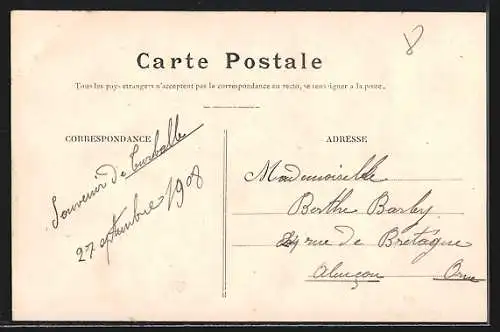 8
Carte Postale
Tous les pays étrangers n'acceptent pas la correspondance au recto, se renseigner à la poste.
CORRESPONDANCE
ADRESSE
Souvenir de Turballe
27 septembre 1908
Mademoiselle
Berthe Barley
24 rue de Bretagne
Alençon Orne